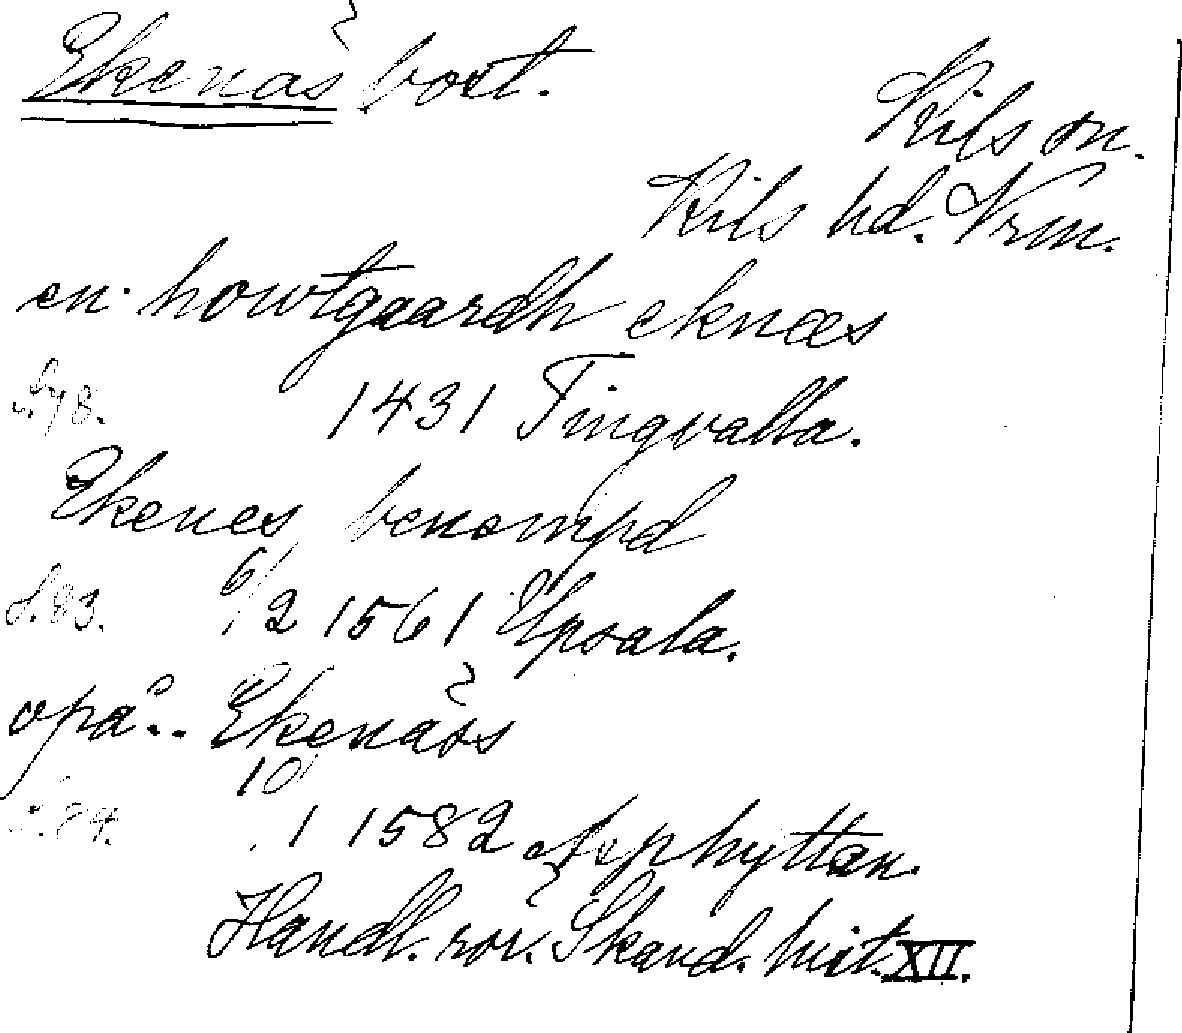 Ekenäs bost.
Kils sn.
Kils hd. Vrm.
en howtgaardh eknæs
S. 78. 1431 Tingvalla.
Ekenes benompd
S. 83. 6/2 1561 Upsala.
opå.. Ekenäss
S. 84. 10/1 1582 Asphyttan.
Handl. rör. Skand. hist. XII.